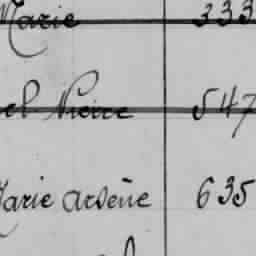 Marie 333
el Pierre 547
Marie Arsène 635